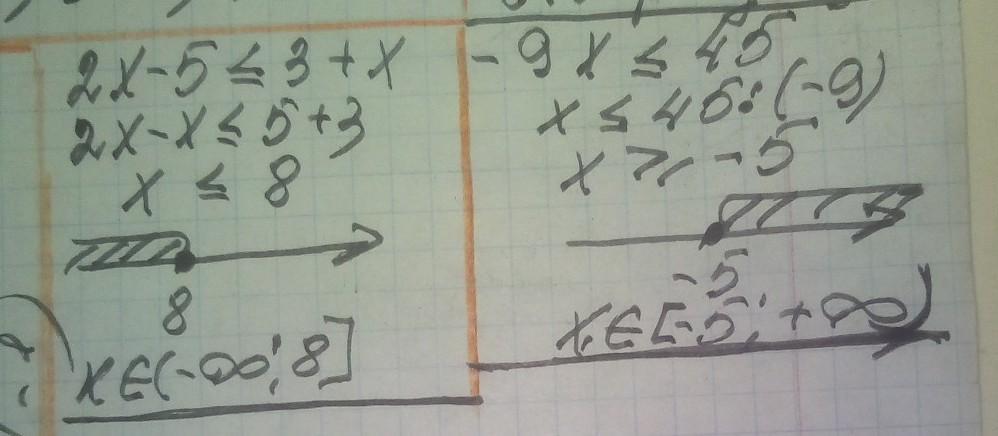 2x-5≤3+x
2x-x≤5+3
x ≤ 8
8
x∈(-∞; 8]
-9x≤45
x≤45:(-9)
x⩾-5
-5
x∈[-5; +∞)